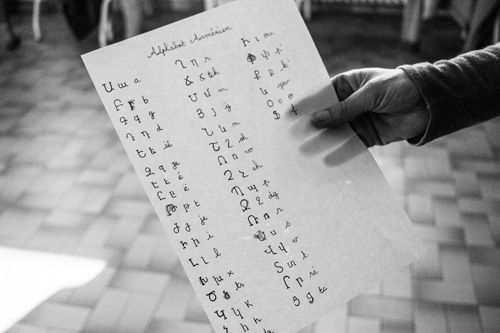 Alphabet Arménien
Ա ա a
Բ բ b
Գ գ g
Դ դ d
Ե ե ié
Զ զ
Է է é
Ը ը e
Թ թ t
Ժ ժ je
Ի ի i
Լ լ l
Խ խ x
Ծ ծ ts
Կ կ K
Հ հ h
Ղ ղ r
Ճ ճ
Մ մ m
Յ յ
Ն ն n
Շ շ ch
Ո ո
Չ չ
Պ պ p
Ջ ջ dj
Ռ ռ r
Ս ս s
Վ վ v
Տ տ t
Ր ր
Ց ց ts
Ւ ւ ou
Փ փ
Ք ք
և
Օ օ o
Ֆ